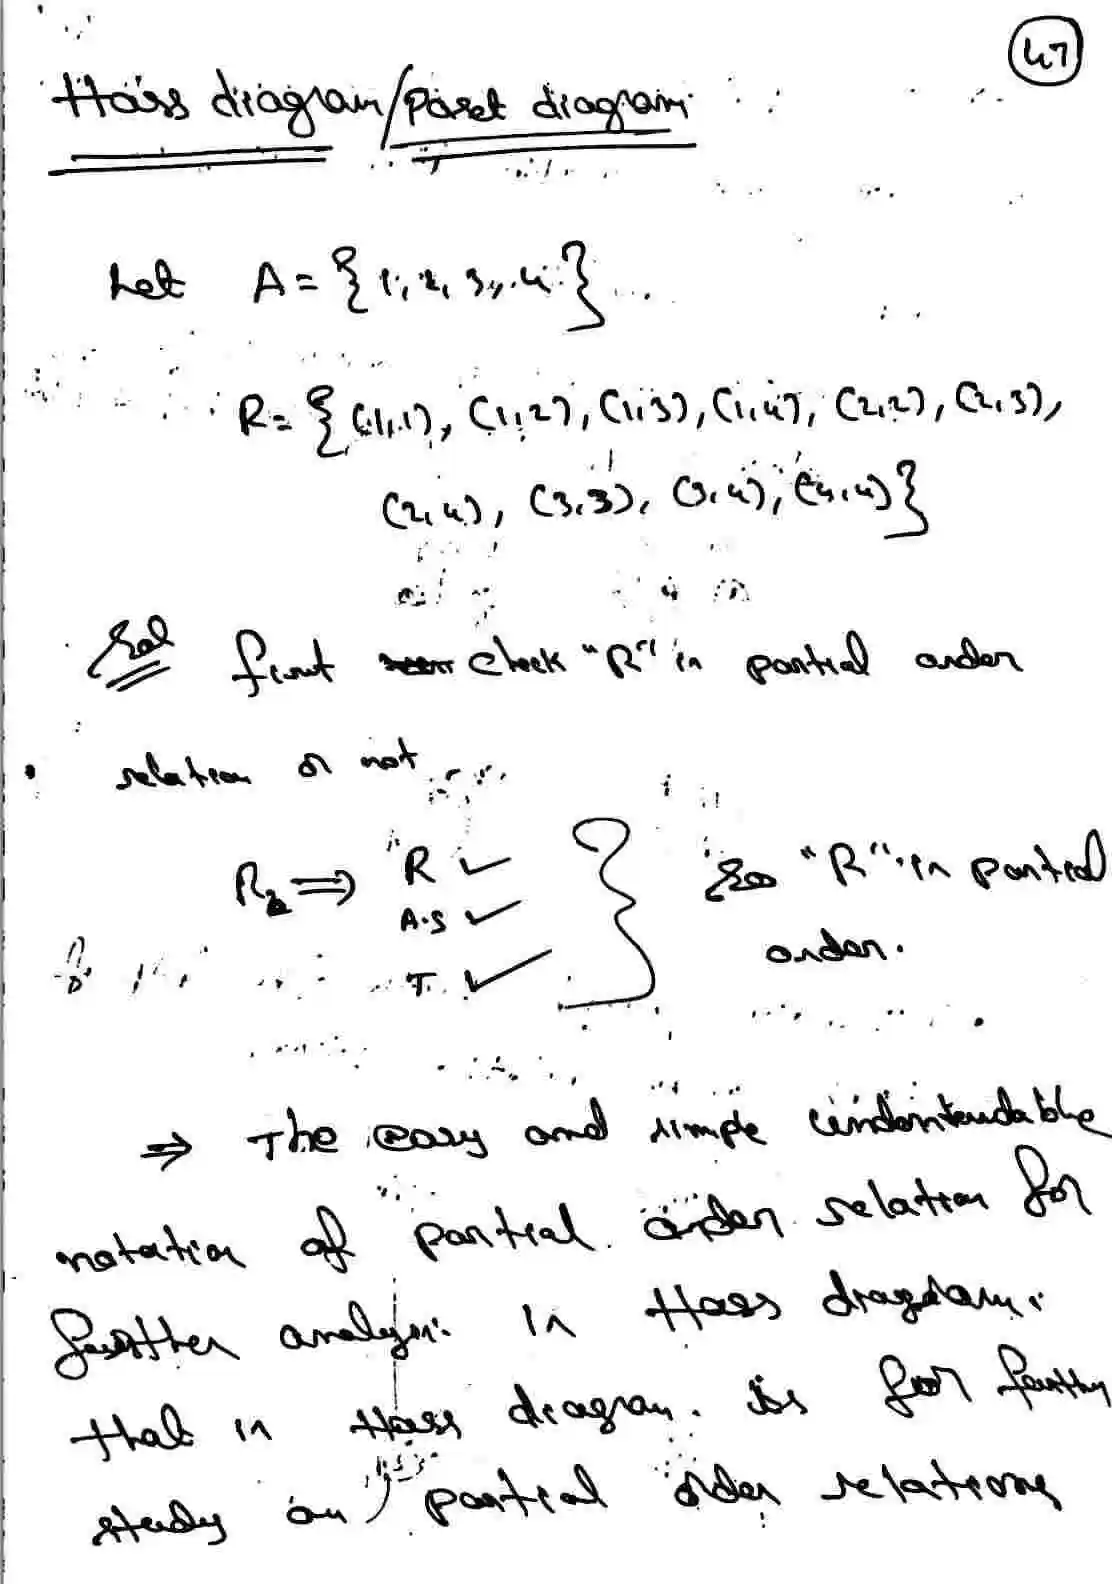 47
Hass diagram/poset diagram
Let A = { 1, 2, 3, 4 }
R = { (1,1), (1,2), (1,3), (1,4), (2,2), (2,3),
(2,4), (3,3), (3,4), (4,4) }
Sol first check "R" is partial order
relation or not
R ⇒ R ✓
A.S ✓
T. ✓
So "R" is partial
order.
⇒ The easy and simple understandable
notation of partial order relation for
further analysis is Hass diagram.
that is Hass diagram. is for further
study on partial order relations